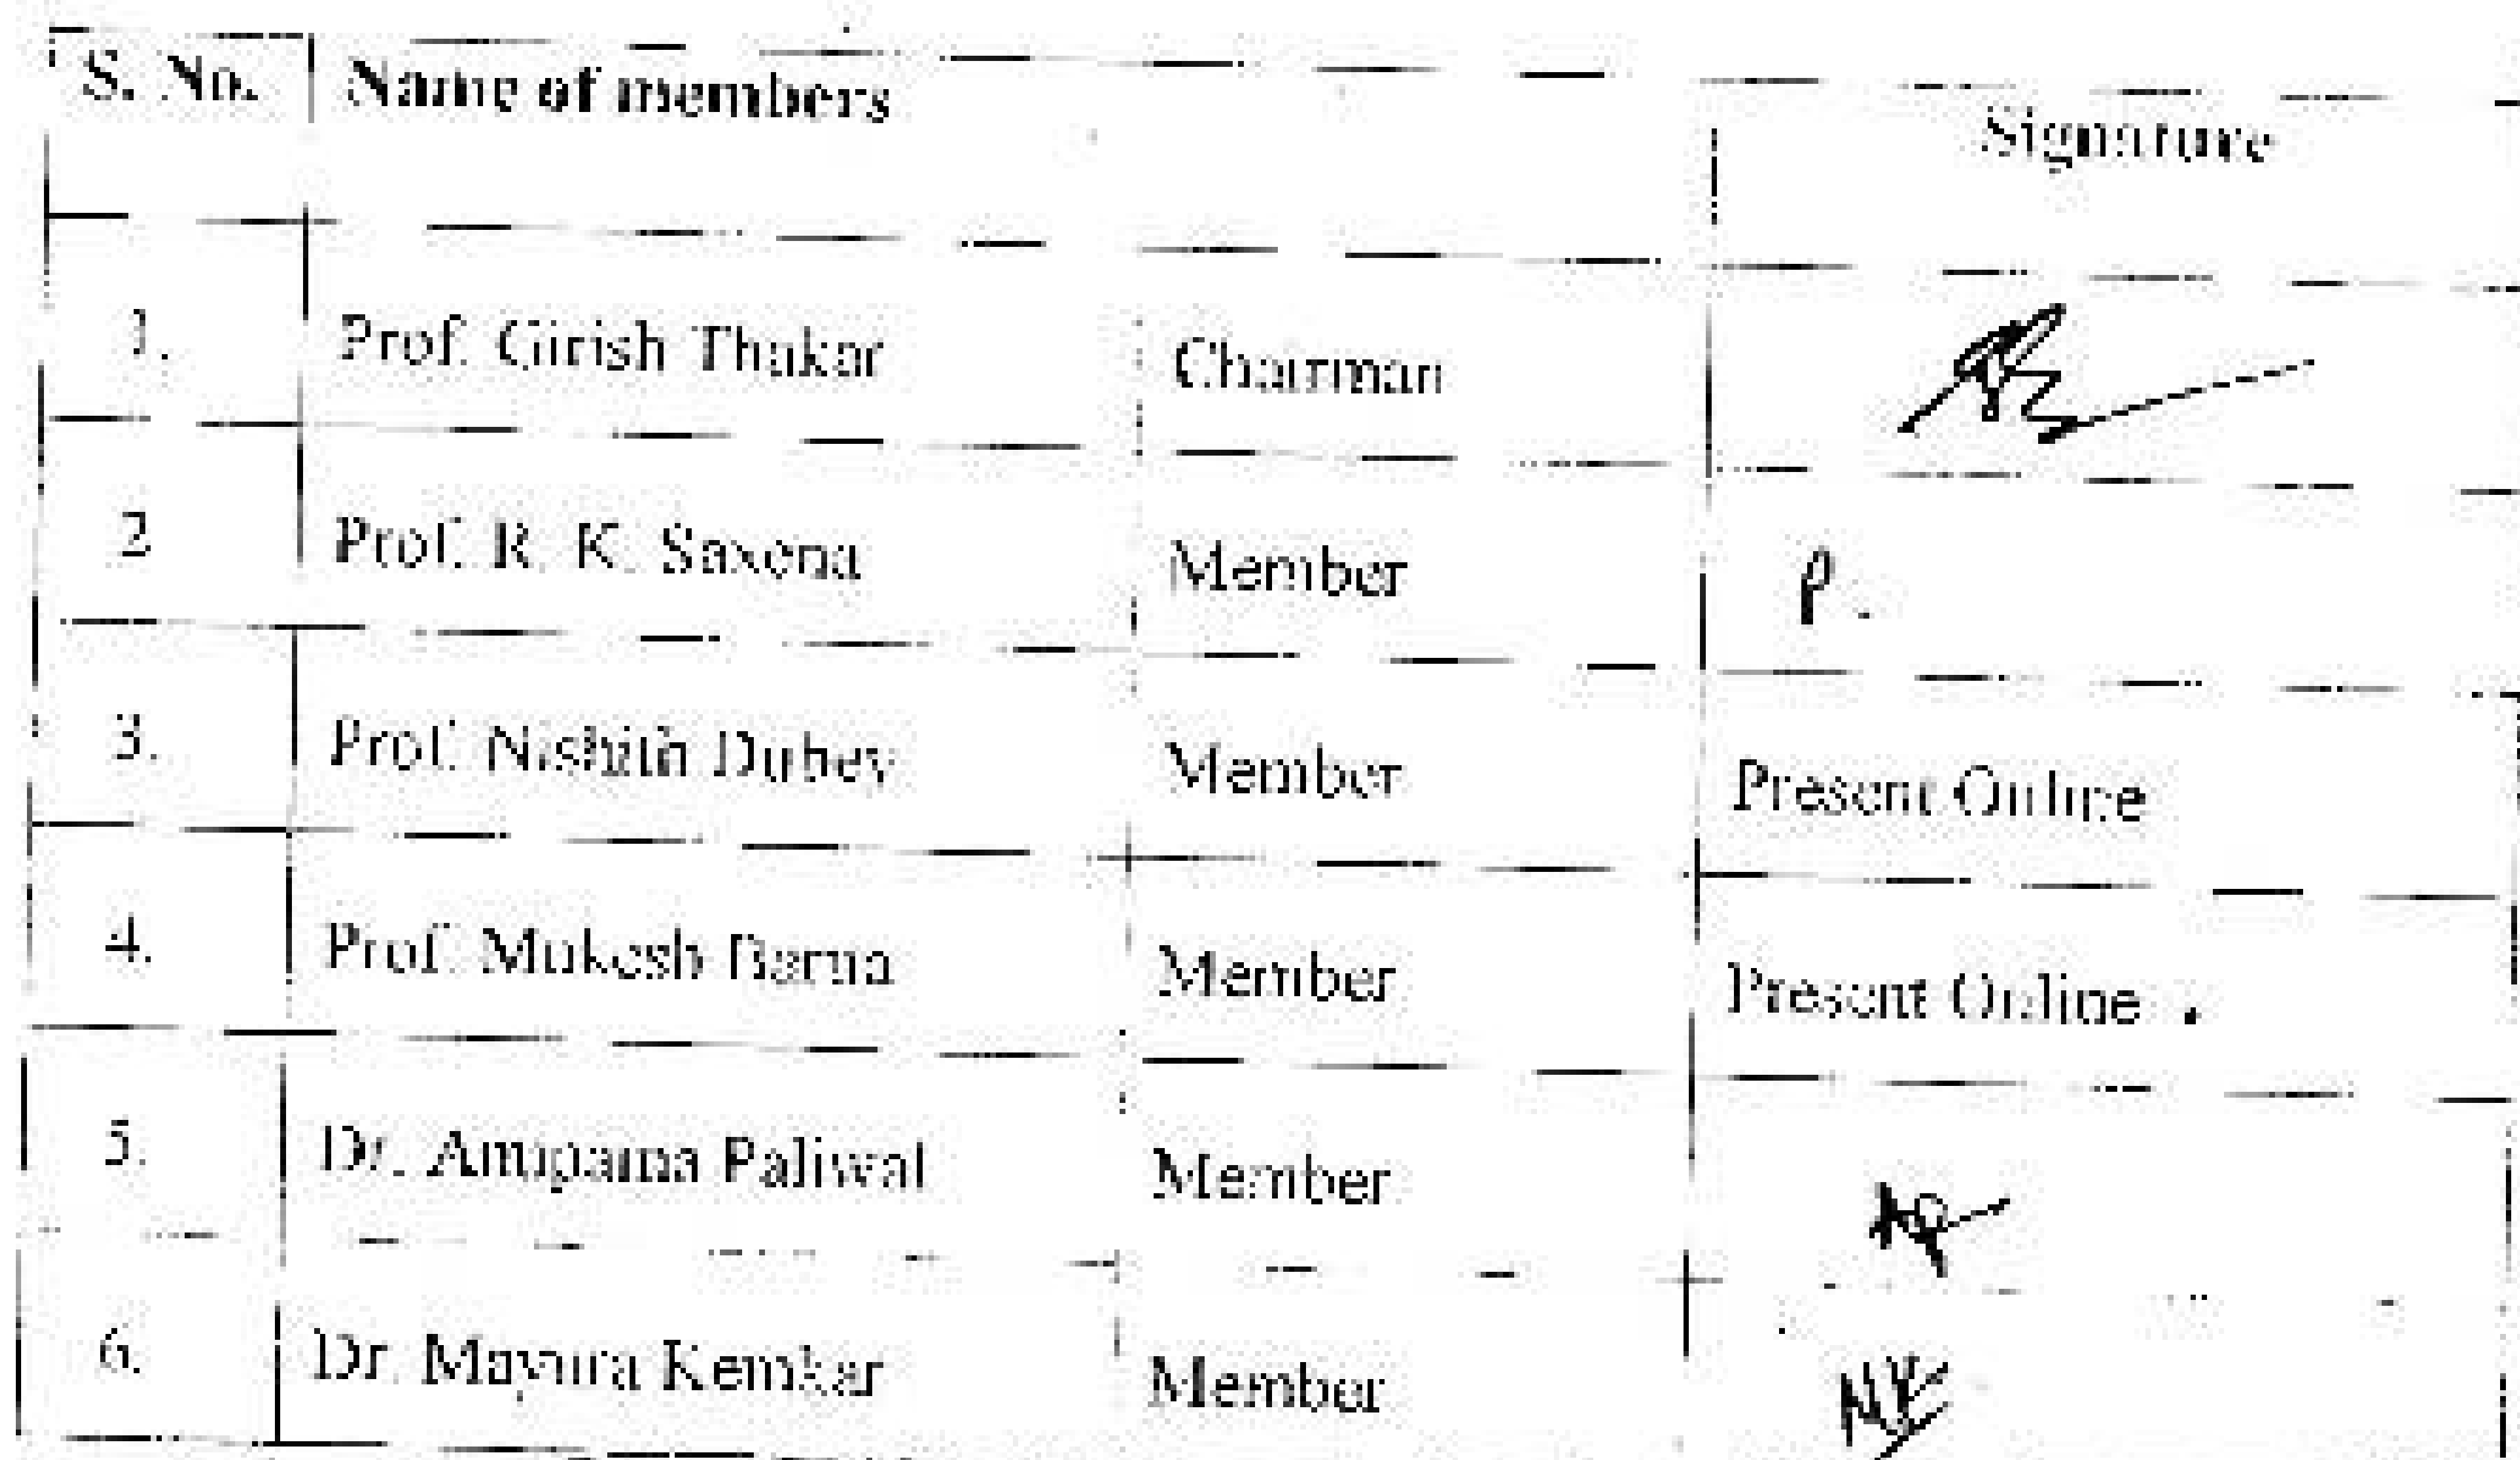 S. No. Name of members Signature
1. Prof. Girish Thakar Chairman
2 Prof. R. K. Saxena Member P.
3. Prof. Nishith Dubey Member Present Online
4. Prof. Mukesh Member Present Online .
5. Dr. Anupama Paliwal Member AP
6. Dr. Mayura Kemkar Member MK